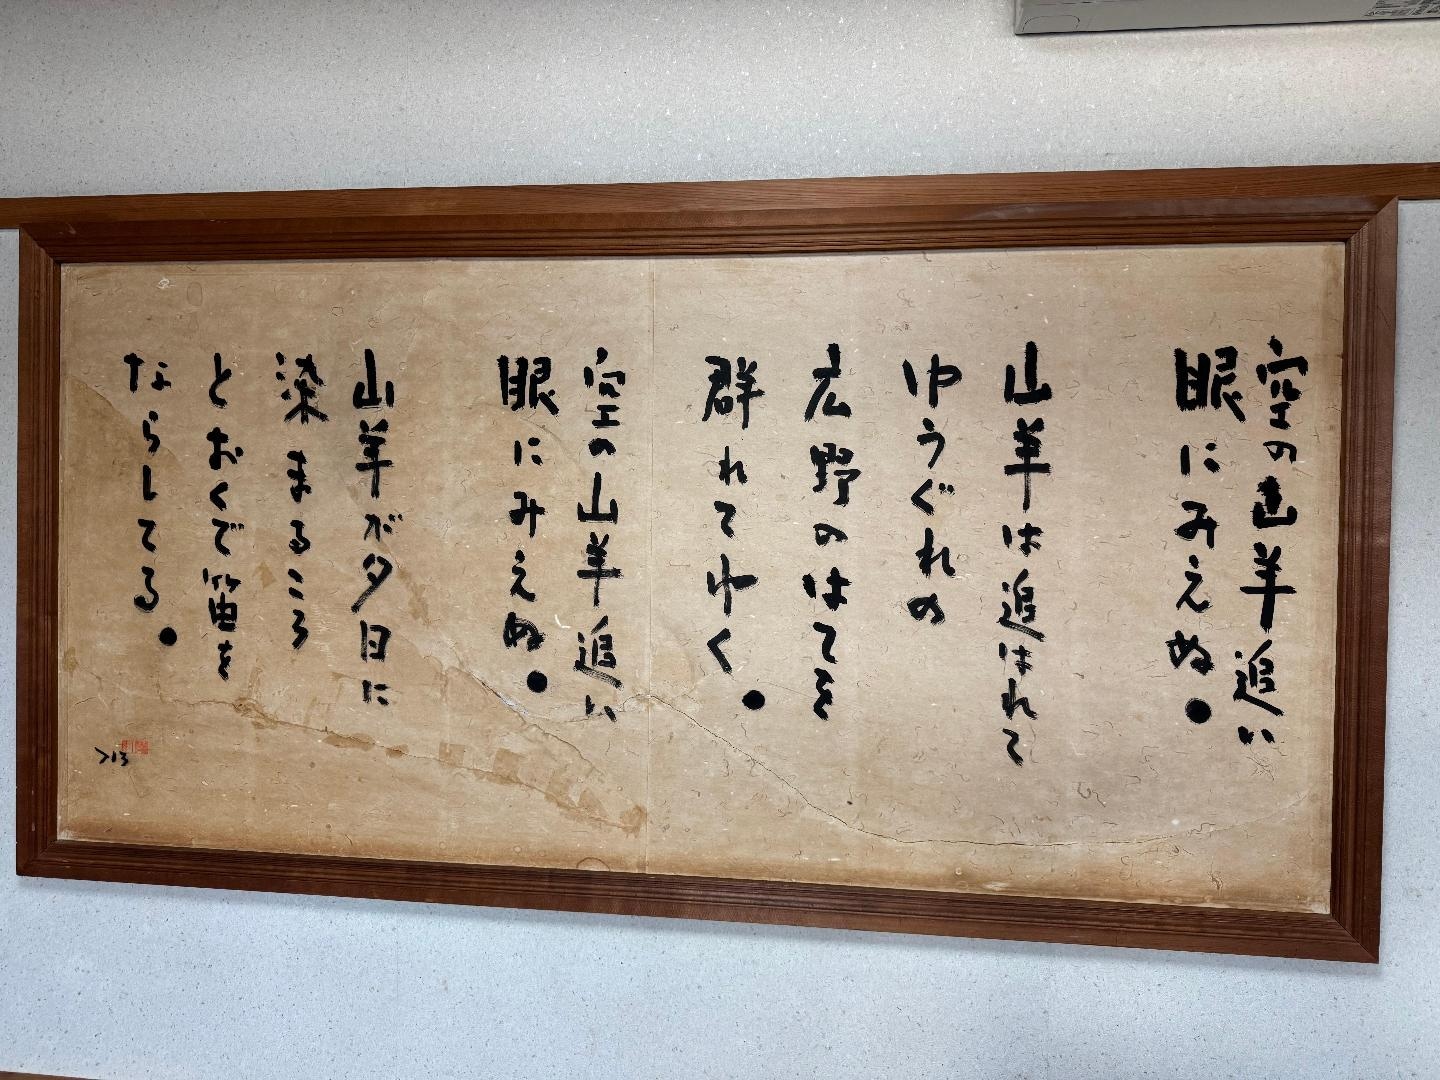 空の山羊追い
眼にみえぬ●
山羊は追はれて
ゆうぐれの
広野のはてを
群れてゆく●
空の山羊追い
眼にみえぬ●
山羊が夕日に
染まるころ
とおくで笛を
ならしてる●